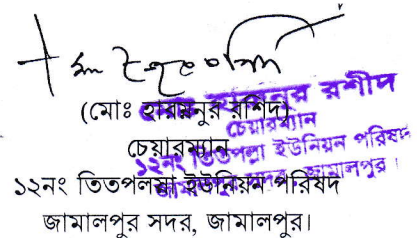 (মোঃ হারুনুর রশিদ)
চেয়ারম্যান
১২নং তিতপল্লা ইউনিয়ন পরিষদ
জামালপুর সদর, জামালপুর।
মোঃ হারুনুর রশীদ
চেয়ারম্যান
১২নং তিতপল্লা ইউনিয়ন পরিষদ
জামালপুর সদর, জামালপুর।